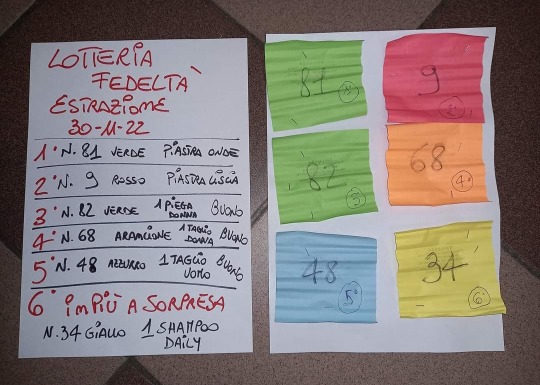 LOTTERIA
FEDELTÀ
ESTRAZIONE
30-11-22
1° N. 81 VERDE PIASTRA ONDE
2° N. 9 ROSSO PIASTRA LISCIA
3° N. 82 VERDE 1 PIEGA DONNA BUONO
4° N. 68 ARANCIONE 1 TAGLIO DONNA BUONO
5° N. 48 AZZURRO 1 TAGLIO UOMO BUONO
6° IMPIÙ A SORPRESA
N. 34 GIALLO 1 SHAMPOO
DAILY
81
9
82
3°
68
4°
48
5°
34
6°